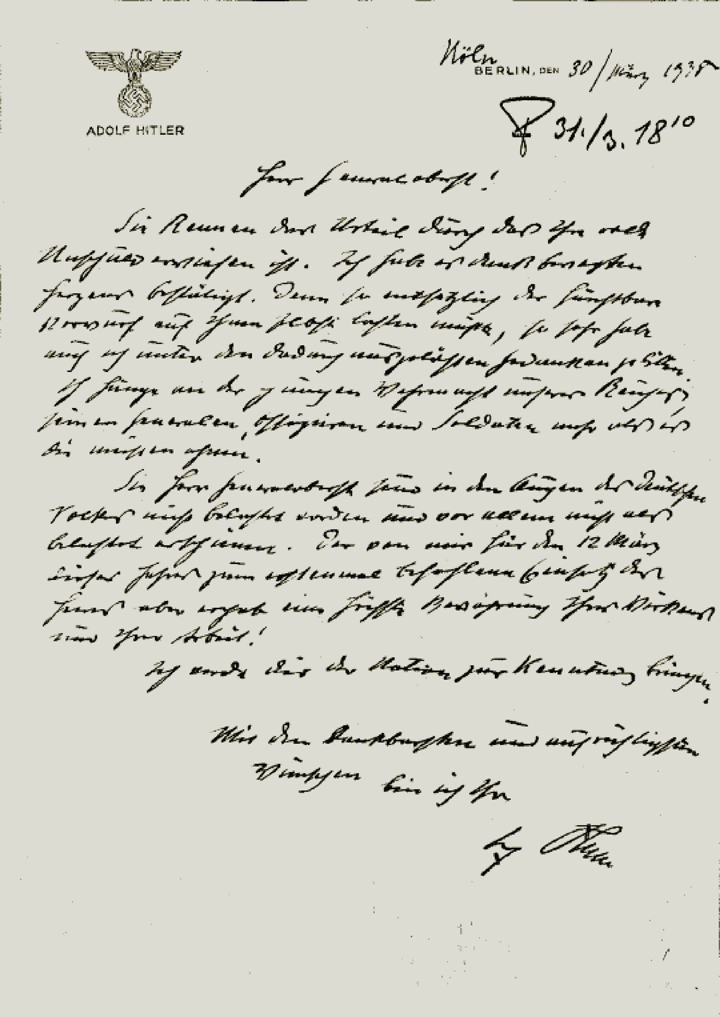 ADOLF HITLER
Köln
BERLIN, DEN 30/März 1938
31./3. 18¹⁰
Herr Generaloberst!
Sie kennen das Urteil durch das Ihre volle
Unschuld erwiesen ist. Ich habe es dankbewegten
Herzens bestätigt. Denn so entsetzlich der furchtbare
Vorwurf auf Ihnen selbst lasten mußte, so sehr habe
auch ich unter den dadurch ausgelösten Gedanken gelitten.
Ich hänge an der jungen Wehrmacht unseres Reiches,
seinen Generalen, Offizieren und Soldaten mehr als es
die meisten ahnen.
Sie Herr Generaloberst sind in den Augen des deutschen
Volkes nicht belastet worden und vor allem nicht als
belastet erschienen. Der von mir für den 12 März
dieses Jahres zum erstenmal befohlene Einsatz des
Heeres aber ergab eine höchste Bewährung Ihres Wirkens
und Ihrer Arbeit!
Ich werde dies der Nation zur Kenntnis bringen.
Mit den dankbarsten und aufrichtigsten
Wünschen bin ich Ihr